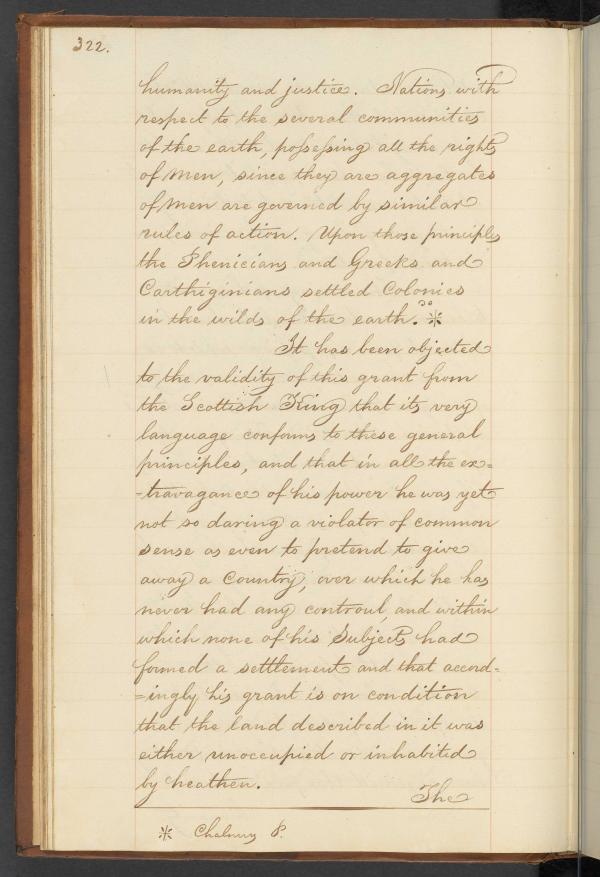 322.
humanity and justice. Nations with
respect to the several communities
of the earth, possessing all the rights
of men, since they are aggregates
of men are governed by similar
rules of action. Upon those principles
the Phenicians and Greeks and
Carthiginians settled Colonies
in the wilds of the earth. *
It has been objected
to the validity of this grant from
the Scottish King that its very
language conforms to these general
principles, and that in all the ex=
=travagance of his power he was yet
not so daring a violator of common
sense as even to pretend to give
away a Country, over which he has
never had any controul, and within
which none of his Subjects had
formed a settlement and that accord=
=ingly his grant is on condition
that the land described in it was
either unoccupied or inhabited
by heathen.
The
* Chalmers P.